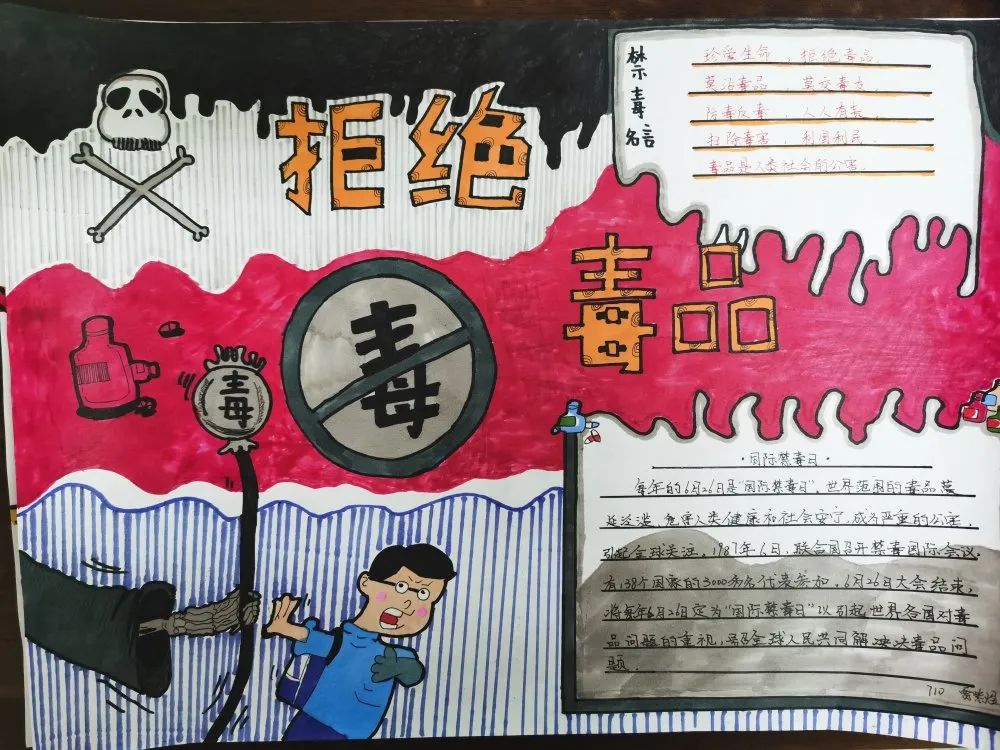 拒绝
毒品
禁毒名言
珍爱生命，拒绝毒品
莫沾毒品 莫交毒友
防毒反毒，人人有责.
扫除毒害，利国利民.
毒品是人类社会的公害.
毒
毒
·国际禁毒日·
每年的6月26日是"国际禁毒日"，世界范围的毒品蔓
延泛滥，危害人类健康和社会安宁，成为严重的公害，
引起全球关注。1987年6月，联合国召开禁毒国际会议，
有138个国家的3000多名代表参加，6月26日大会结束，
将每年6月26日定为"国际禁毒日"以引起世界各国对毒
品问题的重视，号召全球人民共同解决决毒品问
题.
710